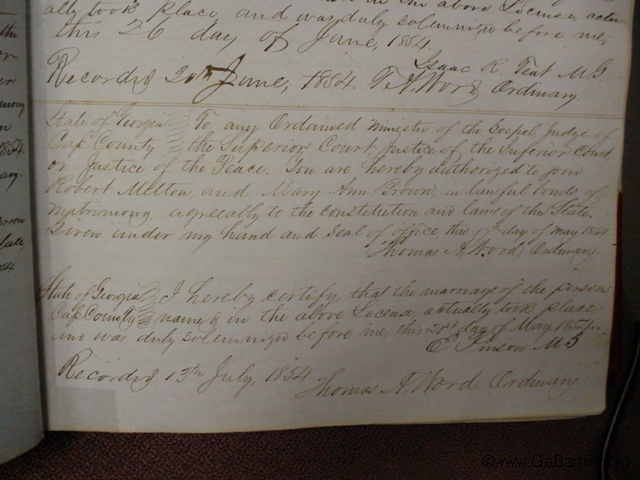 ally took place, and was duly solemnized before me,
this 26 day of June, 1854.
Isaac R. Teat M.G.
Recorded 30th June, 1854. T. A. Word Ordinary
State of Georgia To any Ordained Minister of the Gospel, Judge of
Cass County the Superior Court, Justice of the Inferior Court
or Justice of the Peace. You are hereby authorized to join
Robert Melton, and Mary Ann Brown, in lawful bonds of
matrimony agreeably to the constitution and laws of this State.
Given under my hand and seal of office this 17th day of may 1854.
Thomas A. Word Ordinary
State of Georgia I hereby certify that the marriage of the persons
Cass County named in the above License, actually took place,
and was duly solemnized before me this 21st day of May 1854.
E Pinson M G
Recorded 13th July, 1854. Thomas A. Word Ordinary